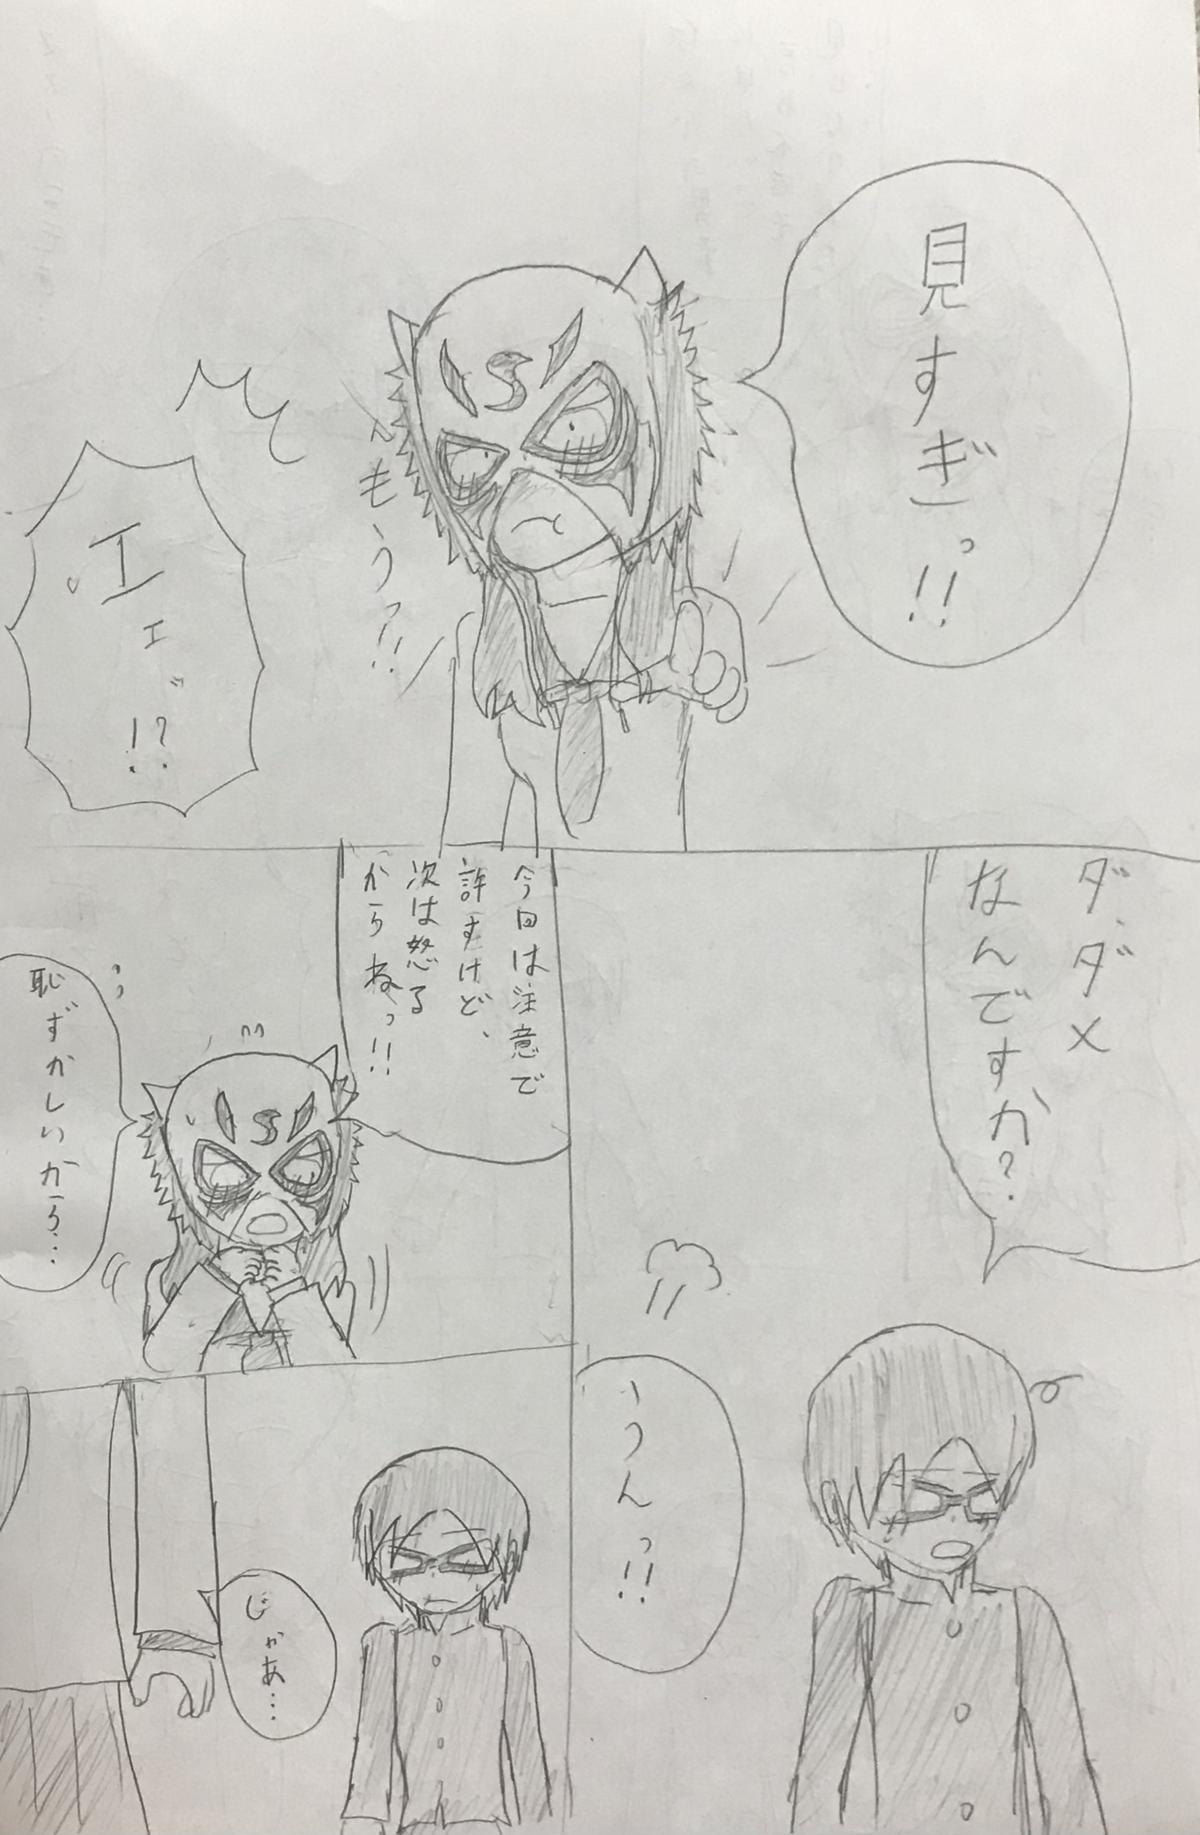 見すぎっ!!
〜もうっ!!
エェッ!?
ダ、ダメ
なんですか?
うんっ!!
今回は注意で
許すけど、
次は怒る
からねっ!!
恥ずかしいから…
じゃあ…